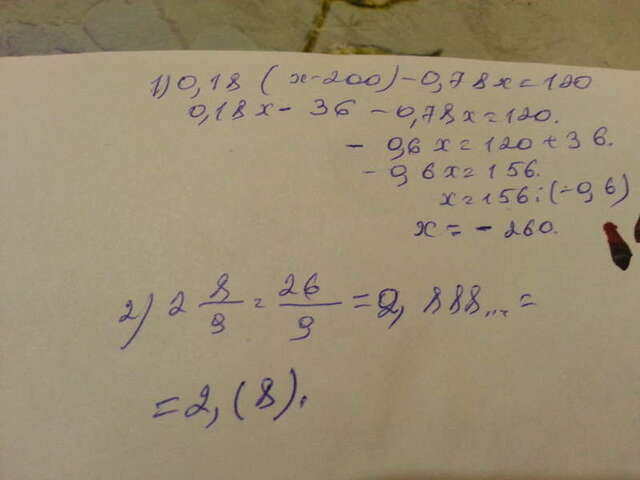 1) 0,18 (x-200) - 0,78x = 120
0,18x - 36 - 0,78x = 120.
- 0,6x = 120 + 36.
- 0,6x = 156.
x = 156 : (-0,6)
x = - 260.
2) 2 8/9 = 26/9 = 2,888... =
= 2,(8).